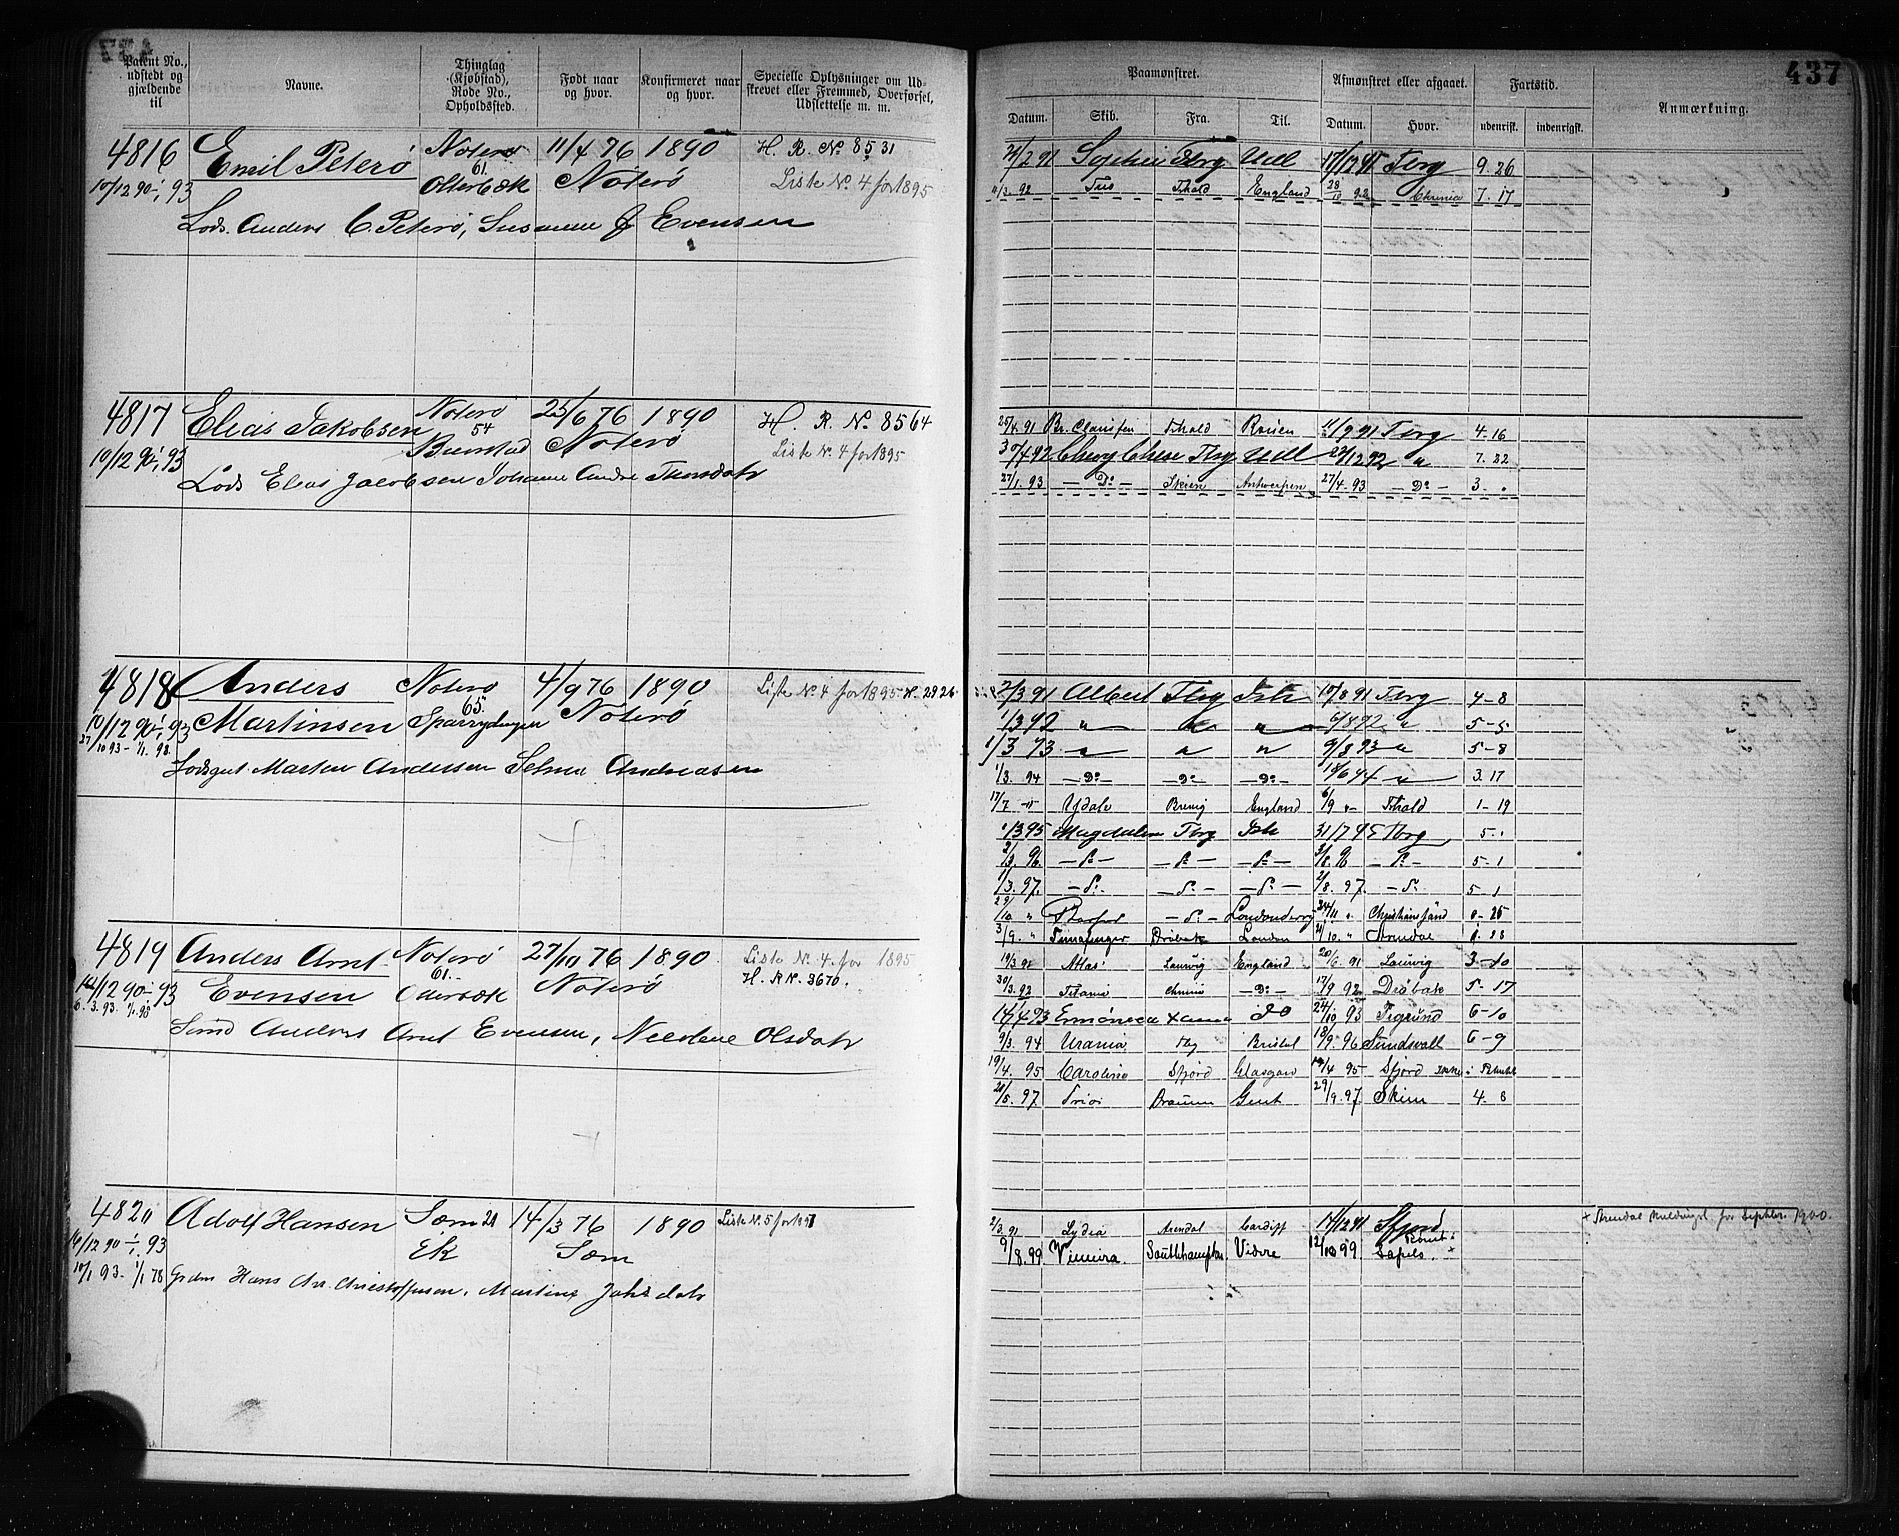 437
Patent No., udstedt og gjældende til
Navne.
Thinglag (Kjøbstad), Rode No., Opholdssted.
Født naar og hvor.
Konfirmeret naar og hvor.
Specielle Oplysninger om Udskrevet eller Fremmed, Overførsel, Udslettelse m. m.
Paamønstret.
Afmønstret eller afgaaet.
Fartstid.
Anmærkning.
Datum. Skib. Fra. Til. Datum. Hvor. udenrigsk. indenrigsk.
4816 Emil Peterø Noterø 11/4 76 1890 H. R. No 8531
10/12 90 - 1/1 93 61 Noterø Liste No. 4 for 1895
Lods. Anders C. Peterø, Susanne J Evensen
21/2 91 Sophie Tbrg Udl Tbrg 9. 26
92 Tris Fhald England 28/10 92 Chrnia 7. 17
4817 Elias Jakobsen Noterø 25/6 76 1890 H. R. No 8564
10/12 90 - 1/1 93 54 Noterø Liste No. 4 for 1895
Lods Elias Jacobsen Johanne Andre
25/4 91 Br. Clausen Fhald Rouen 11/9 91 Tbrg 4. 16
Chevy Chase Tbrg Udl 92 " 7. 22
27/1. 93 — Do — Skien Antwerpen 27/4. 93 — Do — 3. .
4818 Anders Noterø 4/9 76 1890 Liste No. 4 for 1895 No. 2926
10/12 90 - 1/1 93 Martinsen 65. Noterø
27/10 93 - 1/1. 98
Lodsgut. Martin Andersen Selma Andreasen
2/3 91 Albert Tbrg Ish 10/8 91 Tbrg 4-8
1/3 92 " " " 6/8 92 " 5-5
1/3 93 " " " 9/8 93 " 5-8
1/3. 94 — Do — — Do — — Do — 94 " 3. 17
17/7 Ydale Brevig England 6/9 " Fhald 1-19
1/3 95 Magdalena Tbrg Ish 31/7 95 Tbrg 5. .
2/3. 96 — Do — — Do — — Do — 3/8. 96 — Do — 5-1
1/3. 97. — Do — — Do — — Do — 2/8. 97. — Do — 5 1
29/10 " — Do — Londonderry 24/11 " Christiansand 0-25
3/9. " Drøbak London 21/10. " Arendal
4819 Anders Arnt Noterø 27/10 76 1890 Liste No. 4 for 1895
12/12 90 - 93 Evensen 61. Noterø H. R No. 3670.
6. 3. 93. 1/1. 98
Smd Anders Arnt Evensen, Neeoline Olsdatr
19/3 91 Atlas Laurvig England 20/6. 91 Laurvig 3-10
30/3. 92 Titania Chrnia — Do — 17/9 92 Drøbak 5-17
93 Do 24/10 93 6-10
9/3. 94 Urania Tbg Bristol 18/9. 96 Sundsvall 6-9
19/4. 95 Carolina Sfjord Glasgow 95 Sfjord
97 Trio Dramn Gent 29/9. 97. Skien 4. 8
4820 Adolf Hansen Sæm 21 14/3 76 1890 Liste No. 5 for 1897
16/12 90 - 1/1. 93 Ek Sæm
10/1 93. 1/1 98 Hans Chr. Christoffersen, Martine
2/3. 91 Lydia Arendal Cardiff 91 Sfjord
9/8. 99 Vimeira. Southhampton 12/10 99
+ Arendal for Septbr. 1900.